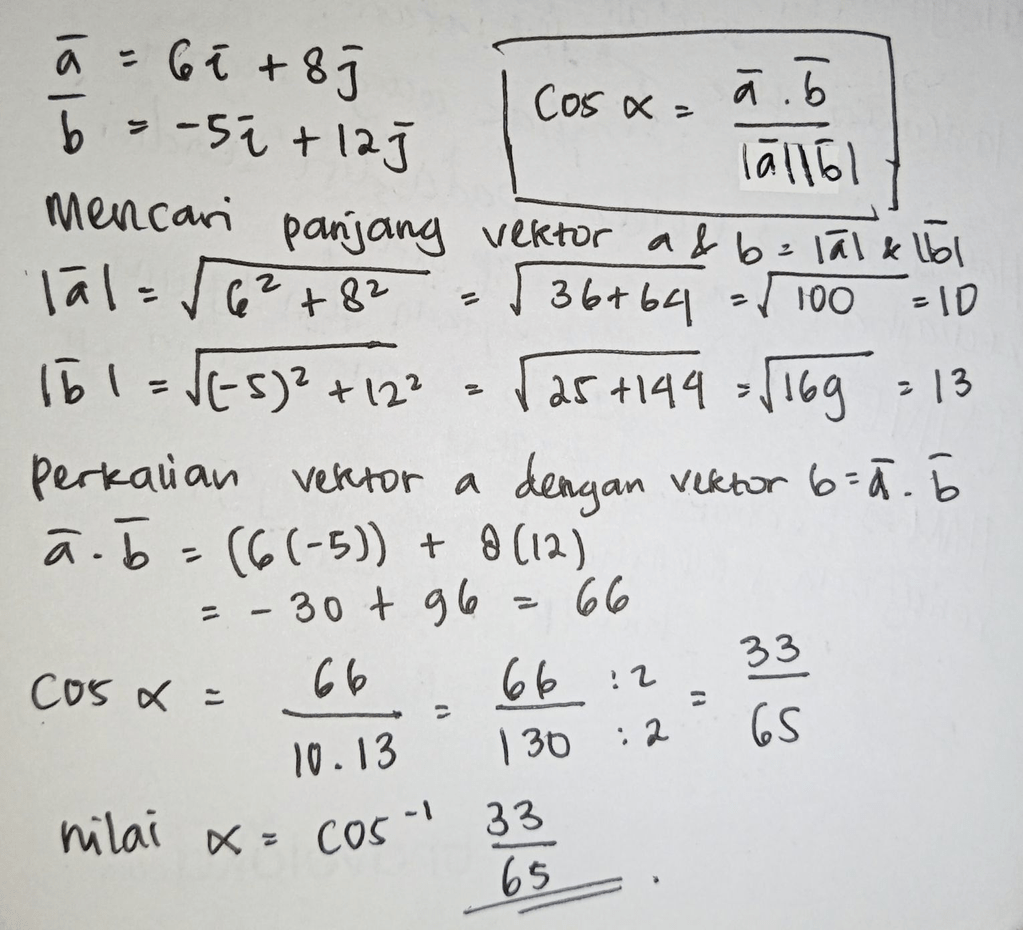 ā = 6ī + 8j̄
b̄ = -5ī + 12j̄
Cos α = ā . b̄ / |ā||b̄|
Mencari panjang vektor a & b = |ā| & |b̄|
|ā| = √(6² + 8²) = √(36+64) = √100 = 10
|b̄| = √((-5)² + 12²) = √(25 +144) = √169 = 13
Perkalian vektor a dengan vektor b = ā . b̄
ā . b̄ = (6(-5)) + 8(12)
= - 30 + 96 = 66
Cos α = 66 / 10.13 = 66 : 2 / 130 : 2 = 33 / 65
nilai α = cos⁻¹ 33 / 65 .